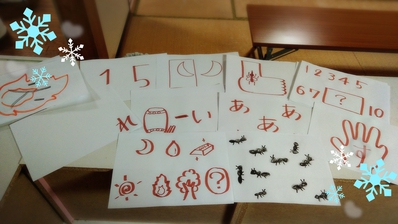 1 5
1 2 3 4 5
6 7 ? 10
れ ーい
あ あ
あ あ
?